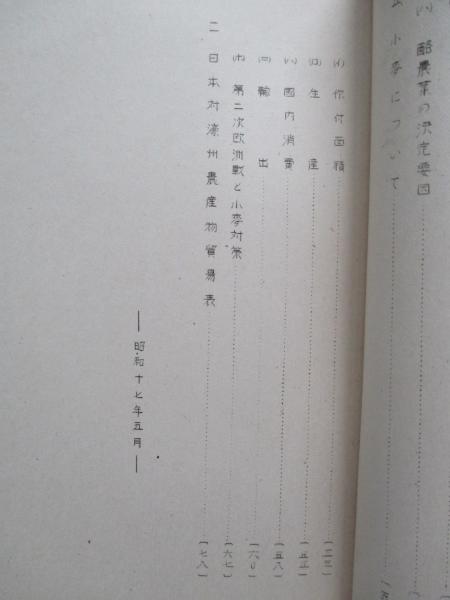 (ハ) 酪農業の決定要因
小麦について
(イ) 作付面積 (二三)
(ロ) 生産 (五三)
(ハ) 国内消費 (五八)
(ニ) 輸出 (六〇)
(ホ) 第二次欧洲戦と小麦対策 (六七)
二 日本対濠州農産物貿易表 (七八)
― 昭和十七年五月 ―